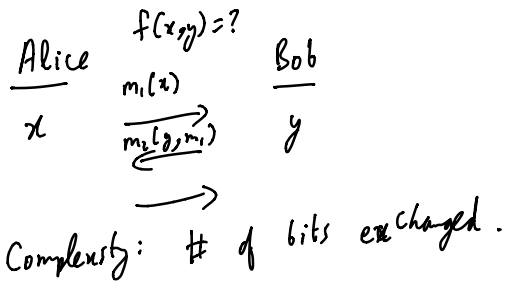 f(x,y)=?
Alice Bob
m₁(x)
x y
m₂(y,m₁)
Complexity: # of bits exchanged.